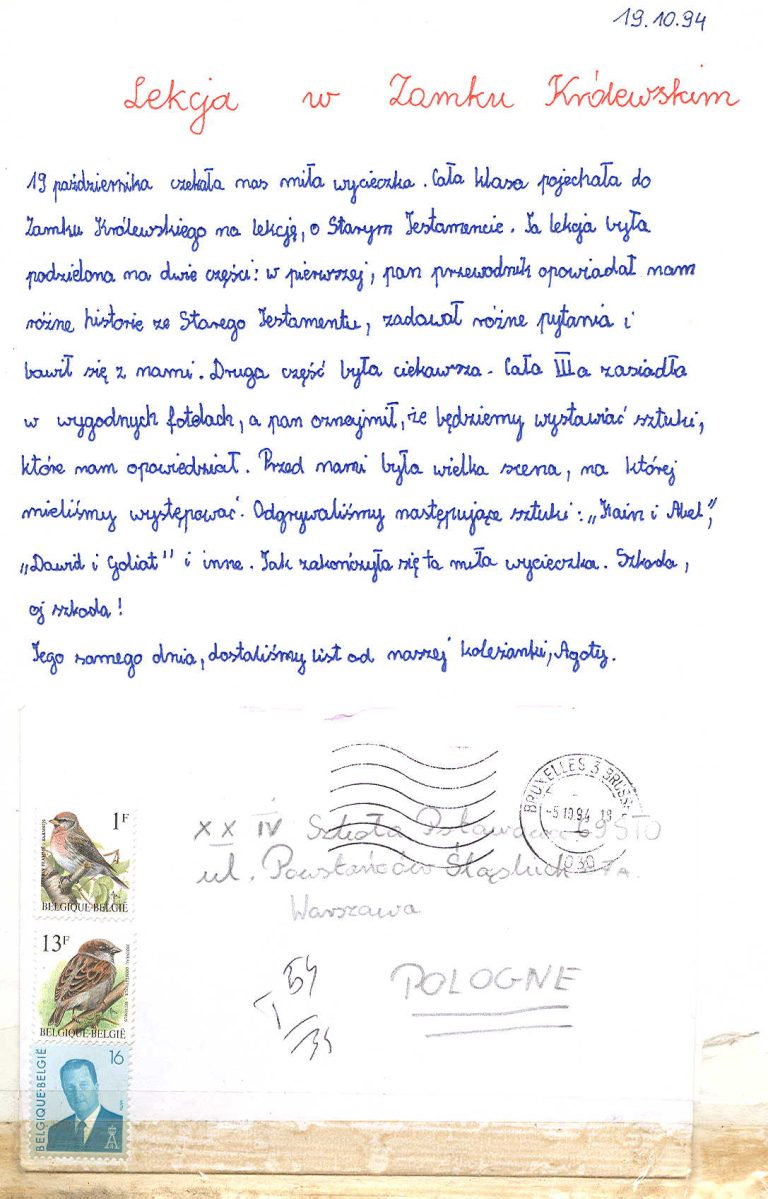 19.10.94
Lekcja w Zamku Królewskim
19 października czekała nas miła wycieczka. Cała klasa pojechała do
Zamku Królewskiego na lekcję, o Starym Testamencie. Ta lekcja była
podzielona na dwie części: w pierwszej, pan przewodnik opowiadał nam
różne historie ze Starego Testamentu, zadawał różne pytania i
bawił się z nami. Druga część była ciekawsza. Cała IIIa zasiadła
w wygodnych fotelach, a pan oznajmił, że będziemy wystawiać sztuki,
które nam opowiedział. Przed nami była wielka scena, na której
mieliśmy występować. Odgrywaliśmy następujące sztuki: „Kain i Abel",
„Dawid i Goliat" i inne. Tak zakończyła się ta miła wycieczka. Szkoda,
oj szkoda!
Tego samego dnia, dostaliśmy list od naszej koleżanki, Agaty.
BRUXELLES 3
-5 10 94
1030
XX IV Szkoła
ul. Powstańców Śląskich 7A.
Warszawa
POLOGNE
T 54
/34
1F
BELGIQUE·BELGIË
13F
BELGIQUE·BELGIË
16
BELGIQUE·BELGIË